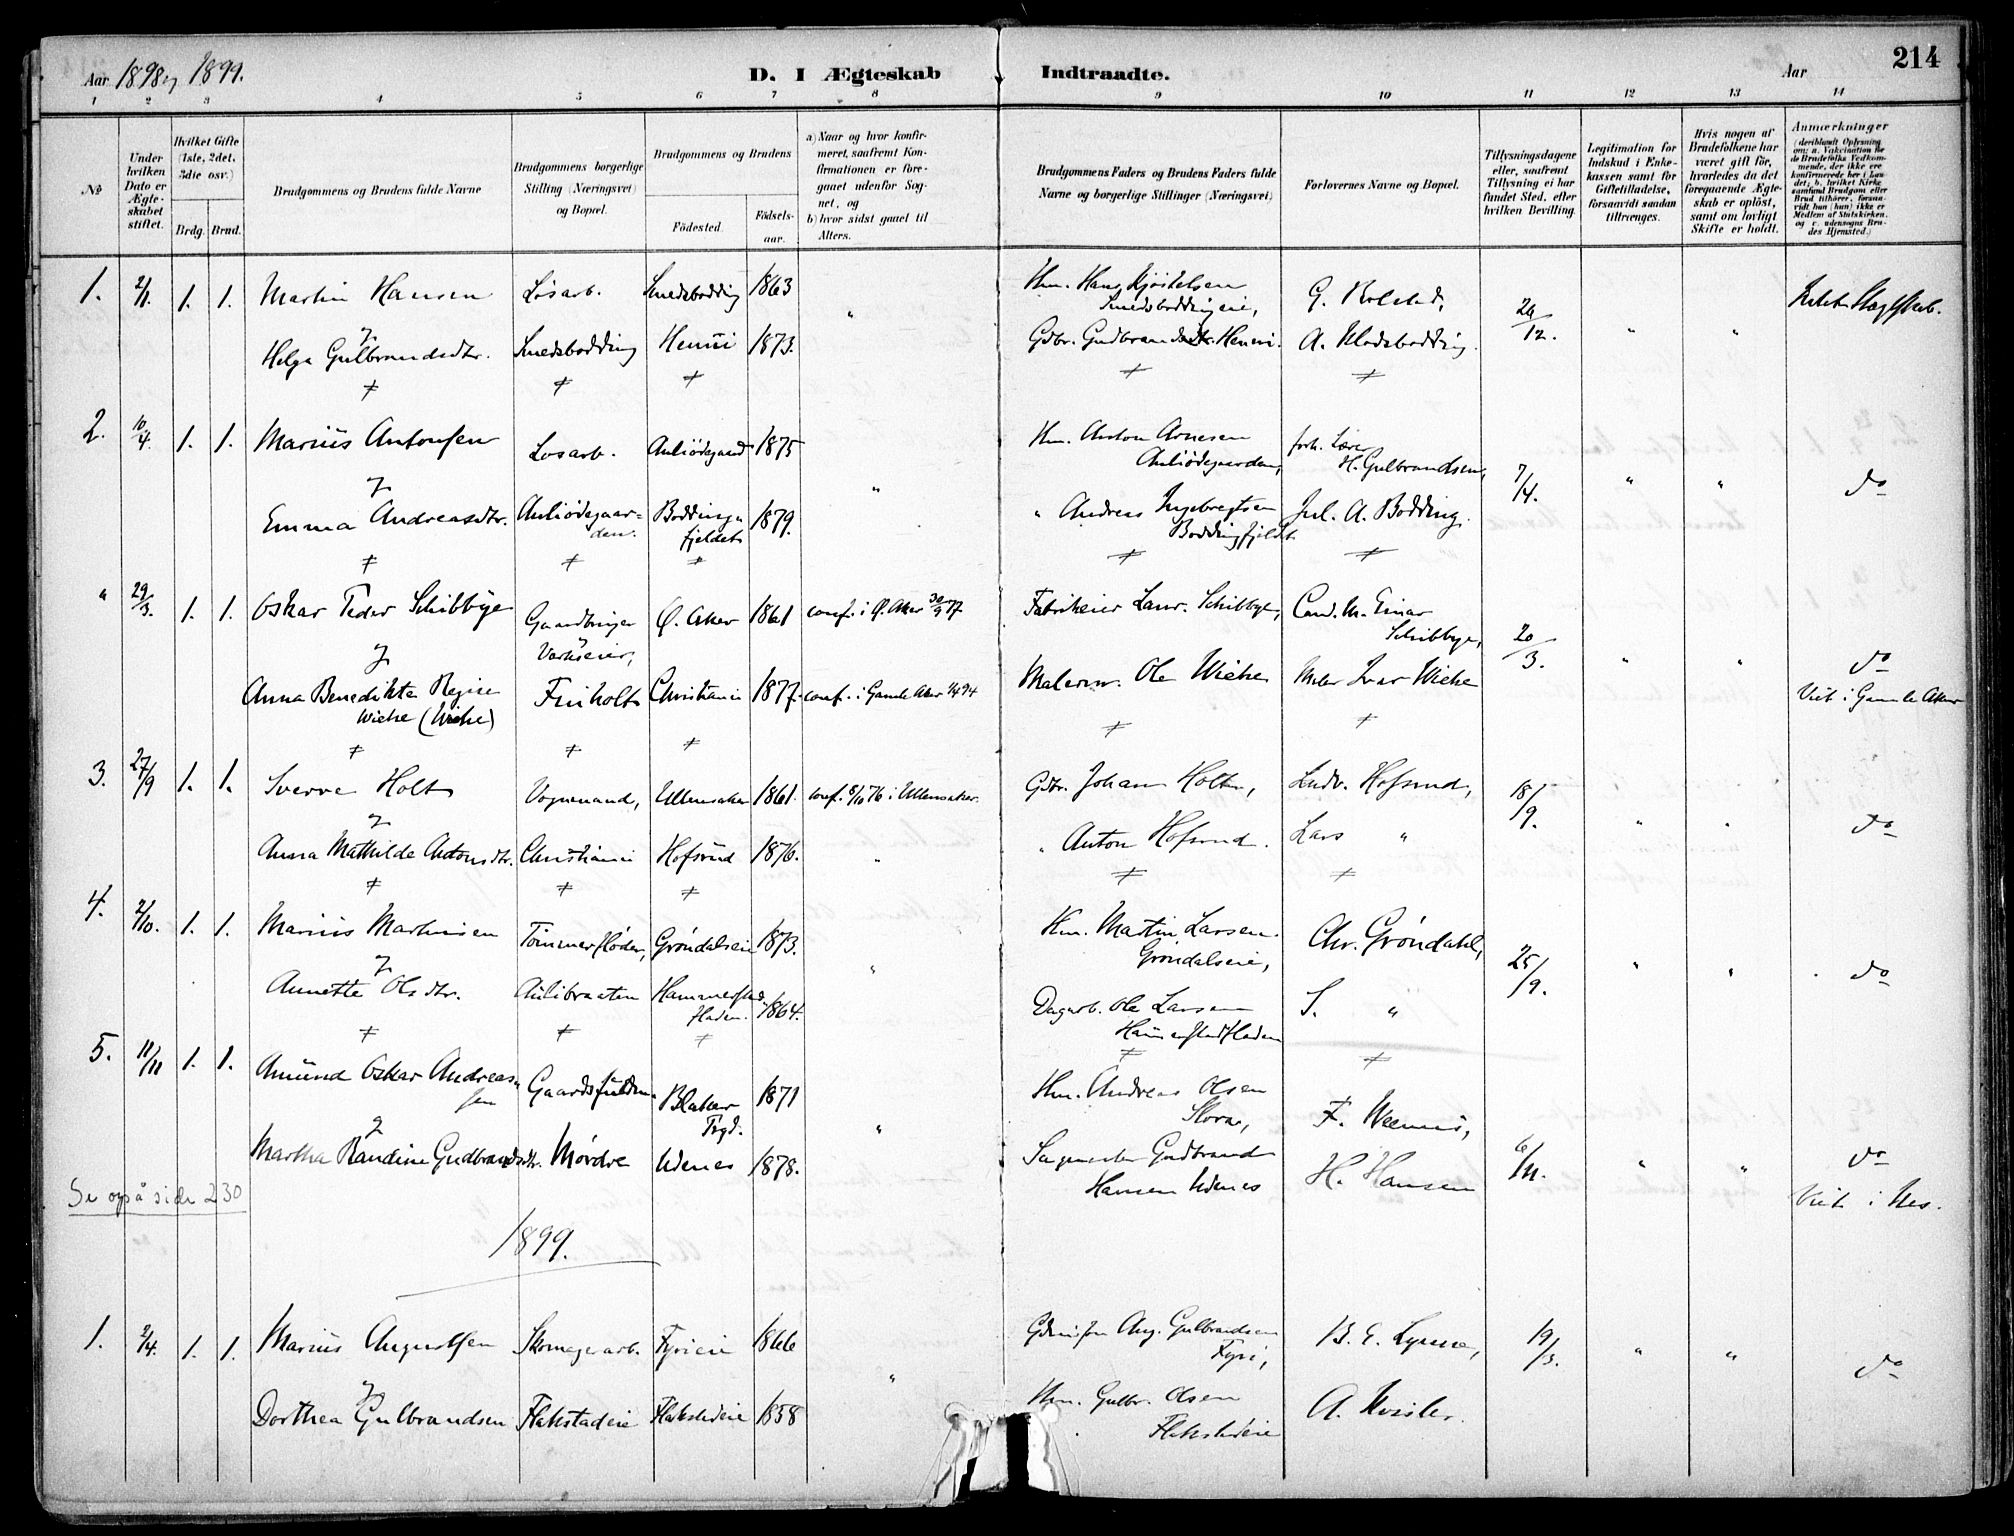 Aar 1898 og 1899.
D. I Ægteskab Indtraadte.
Aar
214
1 2 3 4 5 6 7 8 9 10 11 12 13 14
No
Under hvilken Dato er Ægteskabet stiftet.
Hvilket Gifte (1ste, 2det, 3die osv.)
Brdg. Brud.
Brudgommens og Brudens fulde Navne
Brudgommens borgerlige Stilling (Næringsvei) og Bopæl.
Brudgommens og Brudens
Födested.
Födselsaar.
a) Naar og hvor konfirmeret, saafremt Konfirmationen er foregaaet udenfor Sognet, og
b) hvor sidst gaaet til Alters.
Brudgommens Faders og Brudens Faders fulde Navne og borgerlige Stillinger (Næringsvei)
Forlovernes Navne og Bopæl.
Tillysningsdagene eller, saafremt Tillysning ei har fundet Sted, efter hvilken Bevilling.
Legitimation for Indskud i Enkekassen samt for Giftetilladelse, forsaavidt saadan tiltrænges.
Hvis nogen af Brudefolkene har været gift för, hvorledes da det foregaaende Ægteskab er oplöst, samt om lovligt Skifte er holdt.
Anmærkninger
(deriblandt Oplysning om: a. Vakcination for de Brudefolks Vedkommende, der ikke ere konfirmerede her i Landet; b. hvilket Kirkesamfund Brudgom eller Brud tilhörer, forsaavidt han (hun) ikke er Medlem af Statskirken, og c. udensogns Brudes Hjemsted.)
1. 2/1 1. 1. Martin Hansen Løsarb. Smedsbodding 1863 " Hm. Hans Kjøstelsen
Smedsboddingeie, G. Bolstad, 29/12. " "
Helga Gulbrandsdtr. Smedsbodding Henni 1873. Gdbr. Gudbrand Henni. A. Kladsbodding.
2. 10/4. 1. 1. Marius Antonsen Løsarb. Auliødegaard 1875 " Hm. Anton Arnesen
Auliødegaarden, forh. Lærer H. Gulbrandsen, 7/4. " " do
Emma Andreasdtr. Auliødegaarden. Boddingfjeldet 1879. " Andreas Ingebregtsen
Boddingfjeldet Jul. A. Bodding.
" 29/3. 1. 1. Oskar Peder Schibbye Gaardbruger Værkseier, Ø. Aker 1861 conf. i Ø. Aker 30/9 77 Fabrikeier Laur. Schibbye, Cand. M. Einar
Schibbye, 20/3. " " do
Anna Benedikte Regine
Wiche (Wiche) Finholt Christiania 1877. conf. i Gamle Aker 94 Malerm. Ole Wiche Maler Ivar Wiche Viet i Gamle Aker
3. 27/9 1. 1. Sverre Holt Vognmand, Ullensaker 1861. conf. 8/10 76 i Ullensaker. Gdbr. Johan Holt, Ludv. Hofsrud, 18/9. " " do
Anna Mathilde Antonsdtr. Christiania Hofsrud 1876. " " Anton Hofsrud. Lars "
4. 2/10. 1. 1. Marius Martinsen Tømmerfløder, Grøndalseie 1873. " Hm. Martin Larsen
Grøndalseie, Chr. Grøndahl, 25/9. " " do
Annette Olsdtr. Aulibraaten Hammerstadfladen. 1864. Dagarb. Ole Larsen
Hammerstadfladen S. "
5. 11/11 1. 1. Amund Oskar Andreassen Gaardsfuldm. Blaker
Prgd. 1871 " Hm. Andreas Olsen
F. 6/11. " " do
Martha Randine Gudbrandsdtr. Mørdre Udenes 1878. Sagmester Gudbrand
Hansen Udenes H. Hansen Viet i Nes.
Se også side 230
1899.
1. 2/4. 1. 1. Marius Augustsen Skomagerarb. Fyrieie 1866 " Aug. Gulbrandsen
Fyri, B. E. 19/3. " " do
Dorthea Gulbrandsen Flakstadeie Flakstadeie 1858 Hm. Gulbr. Olsen
Flakstadeie A.